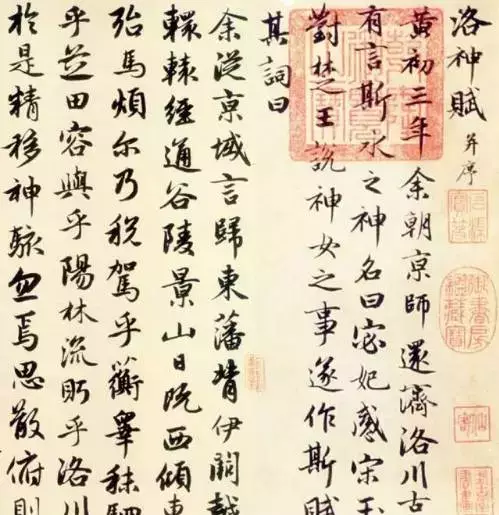 洛神賦 并序
黃初三年余朝京師還濟洛川古
有言斯水之神名曰宓妃感宋玉
對楚王說神女之事遂作斯賦
其詞曰
余從京域言歸東藩背伊闕越
轘轅經通谷陵景山日既西傾車
殆馬煩尔乃稅駕乎蘅皋秣駟
乎芝田容與乎陽林流眄乎洛川
於是精移神駭忽焉思散俯則
御書房鑑藏寶